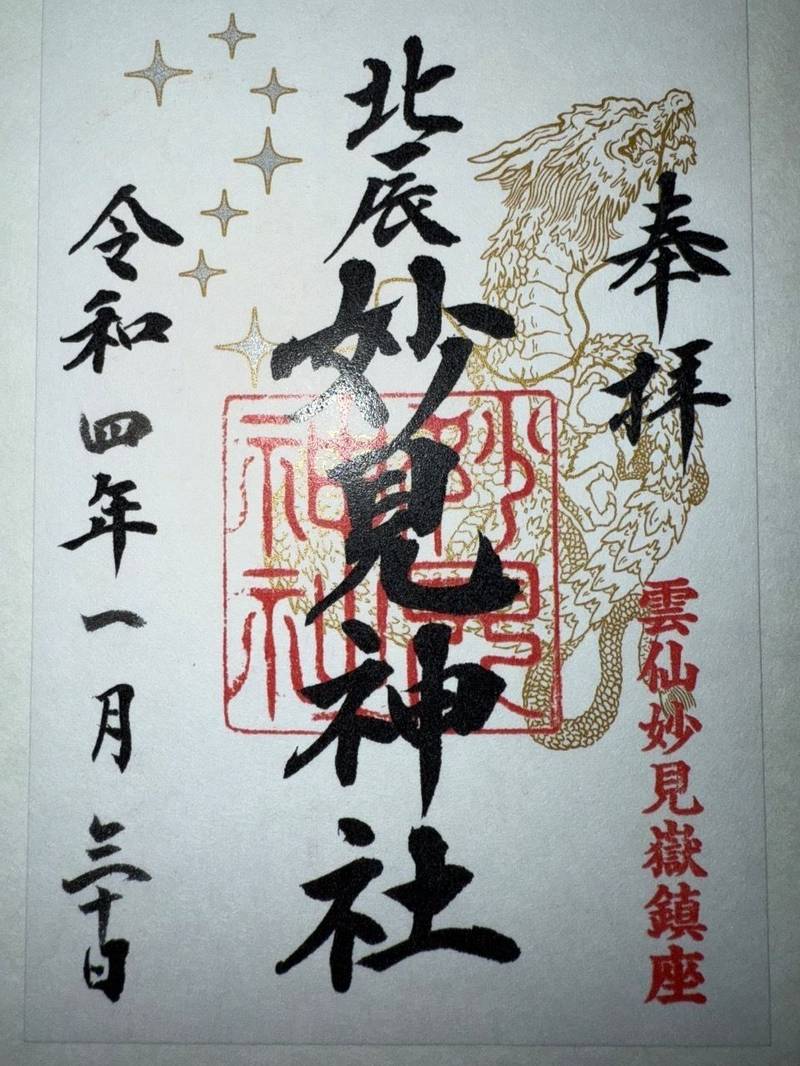 奉拝
雲仙妙見嶽鎮座
北辰
妙見神社
妙見神社
令和四年一月三十日